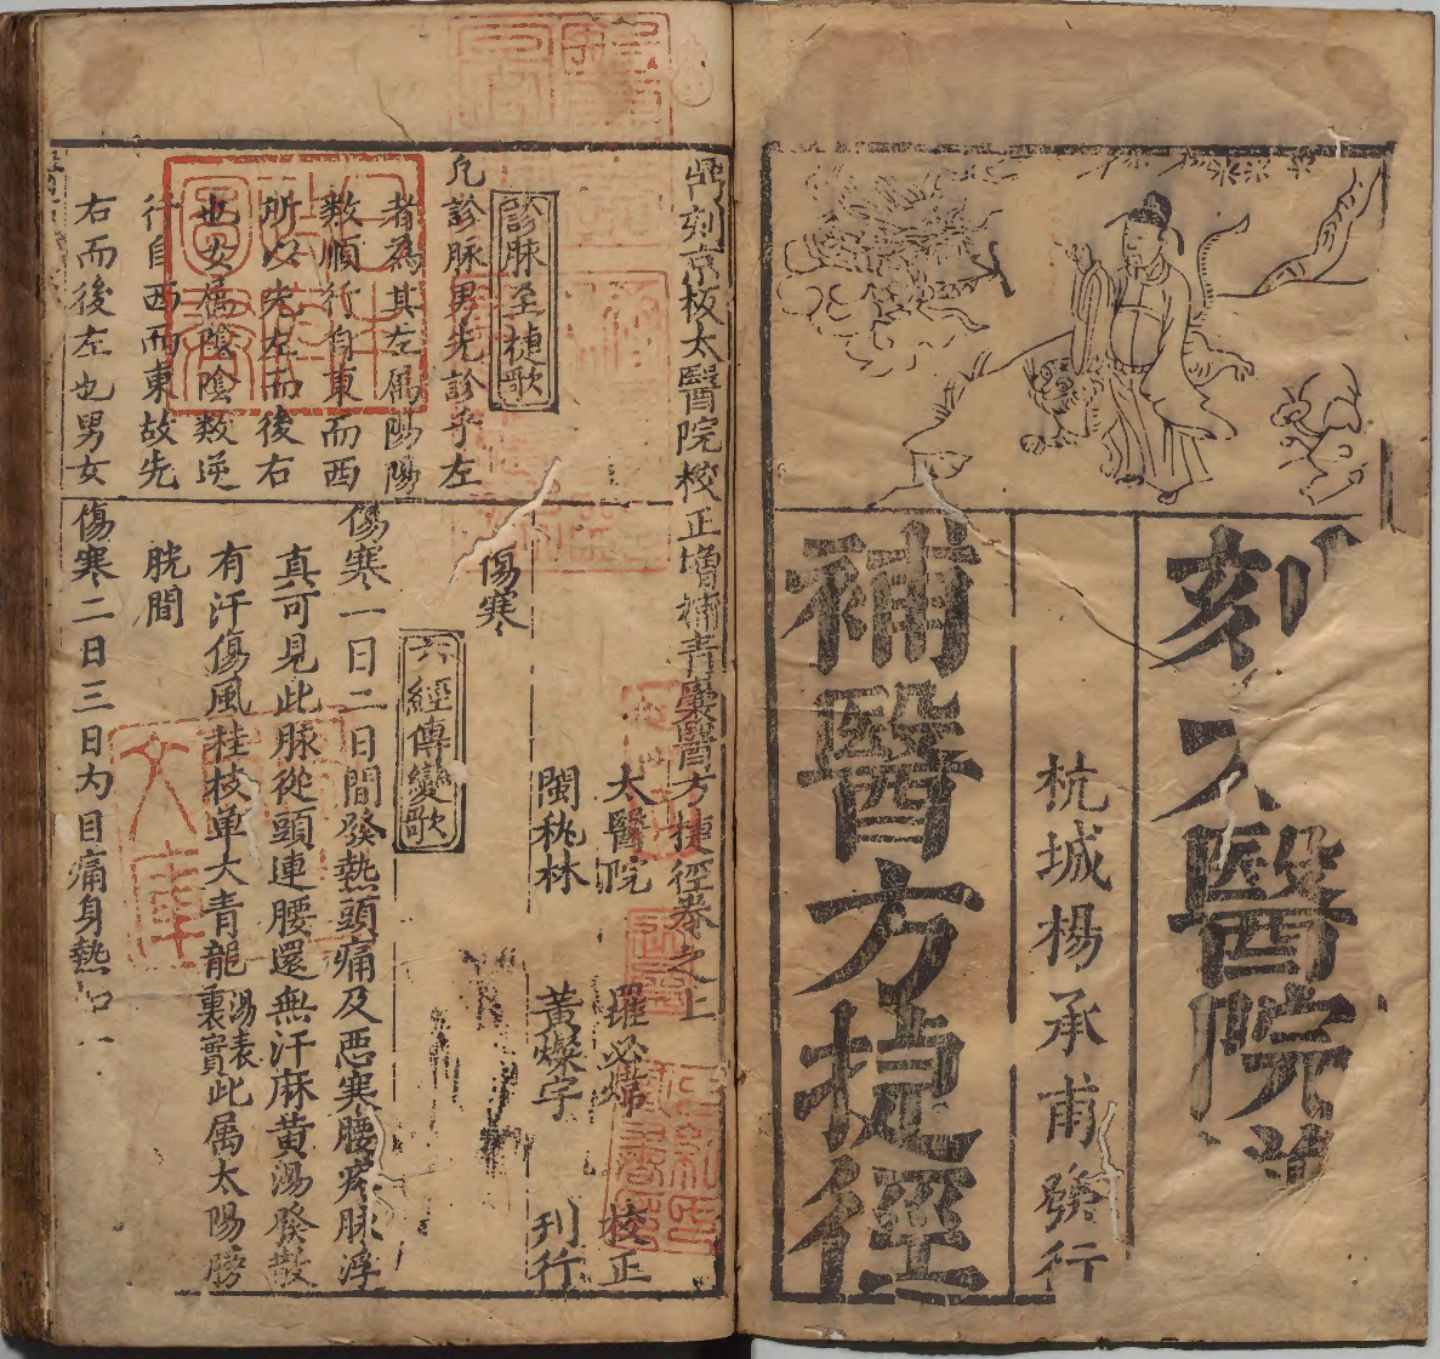 刻太醫院增
杭城楊承甫發行
補醫方捷徑
鼎刻京板太醫院校正增補青囊醫方捷徑卷之上
太醫院 羅必煒 校正
閩秇林 黃燦宇 刊行
診脉至捷歌
凢診脉男先診乎左
者爲其左属陽陽
数順行自東而西
所以先左而後右
也女属陰陰数逆
行自西而東故先
右而後左也男女
傷寒
六經傳變歌
傷寒一日二日間發熱頭痛及惡寒腰疼脉浮
真可見此脉從頭連腰還無汗麻黄湯發散
有汗傷風桂枝单大青龍湯表裏實此属太陽膀
胱間
傷寒二日三日内目痛身熱
文庫